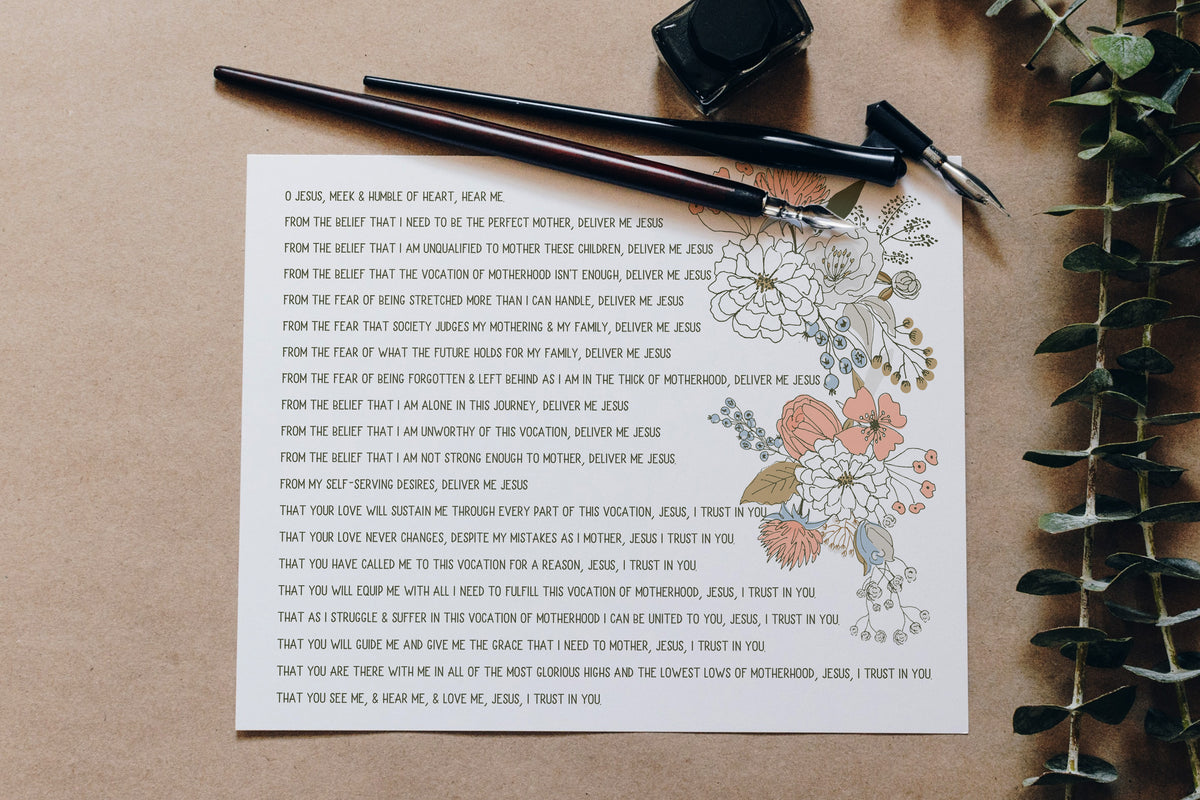 O JESUS, MEEK & HUMBLE OF HEART, HEAR ME.
FROM THE BELIEF THAT I NEED TO BE THE PERFECT MOTHER, DELIVER ME JESUS
FROM THE BELIEF THAT I AM UNQUALIFIED TO MOTHER THESE CHILDREN, DELIVER ME JESUS
FROM THE BELIEF THAT THE VOCATION OF MOTHERHOOD ISN'T ENOUGH, DELIVER ME JESUS
FROM THE FEAR OF BEING STRETCHED MORE THAN I CAN HANDLE, DELIVER ME JESUS
FROM THE FEAR THAT SOCIETY JUDGES MY MOTHERING & MY FAMILY, DELIVER ME JESUS
FROM THE FEAR OF WHAT THE FUTURE HOLDS FOR MY FAMILY, DELIVER ME JESUS
FROM THE FEAR OF BEING FORGOTTEN & LEFT BEHIND AS I AM IN THE THICK OF MOTHERHOOD, DELIVER ME JESUS
FROM THE BELIEF THAT I AM ALONE IN THIS JOURNEY, DELIVER ME JESUS
FROM THE BELIEF THAT I AM UNWORTHY OF THIS VOCATION, DELIVER ME JESUS
FROM THE BELIEF THAT I AM NOT STRONG ENOUGH TO MOTHER, DELIVER ME JESUS.
FROM MY SELF-SERVING DESIRES, DELIVER ME JESUS
THAT YOUR LOVE WILL SUSTAIN ME THROUGH EVERY PART OF THIS VOCATION, JESUS, I TRUST IN YOU.
THAT YOUR LOVE NEVER CHANGES, DESPITE MY MISTAKES AS I MOTHER, JESUS I TRUST IN YOU.
THAT YOU HAVE CALLED ME TO THIS VOCATION FOR A REASON, JESUS, I TRUST IN YOU.
THAT YOU WILL EQUIP ME WITH ALL I NEED TO FULFILL THIS VOCATION OF MOTHERHOOD, JESUS, I TRUST IN YOU.
THAT AS I STRUGGLE & SUFFER IN THIS VOCATION OF MOTHERHOOD I CAN BE UNITED TO YOU, JESUS, I TRUST IN YOU.
THAT YOU WILL GUIDE ME AND GIVE ME THE GRACE THAT I NEED TO MOTHER, JESUS, I TRUST IN YOU.
THAT YOU ARE THERE WITH ME IN ALL OF THE MOST GLORIOUS HIGHS AND THE LOWEST LOWS OF MOTHERHOOD, JESUS, I TRUST IN YOU.
THAT YOU SEE ME, & HEAR ME, & LOVE ME, JESUS, I TRUST IN YOU.